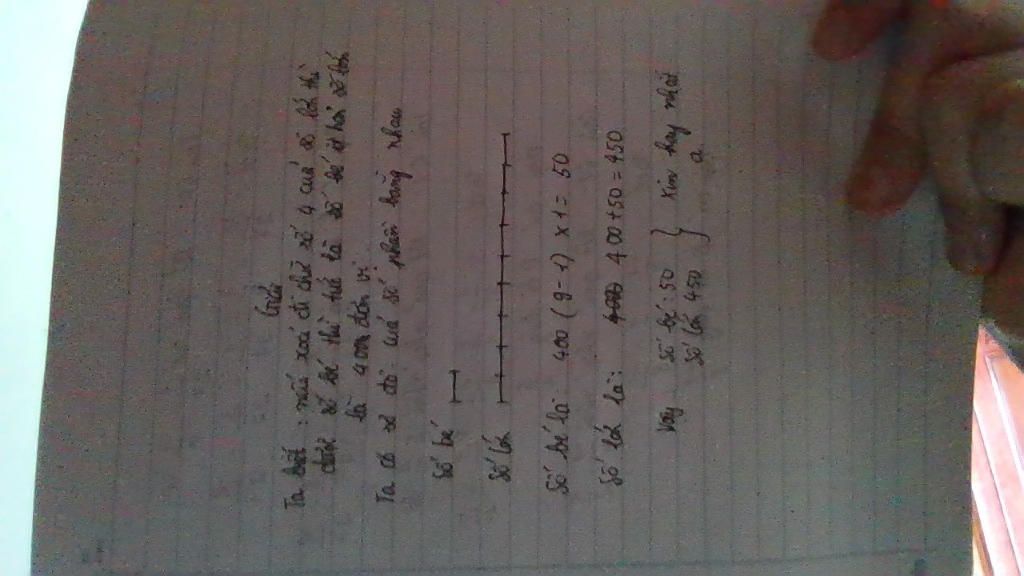 Giải
Ta biết : nếu xoá đi chữ số 4 của số lớn thì
được số bé thì thế là số bé ít hơn số lớn
là 400 đơn vị
Ta có sơ đồ số phần bằng nhau
Số bé
Số lớn
Số bé là 400 (9-1) x 1 = 50
Số lớn là : 400+50 = 450
Vay Số bé : 50
Số lớn 450
} xin hay nhất
ạ